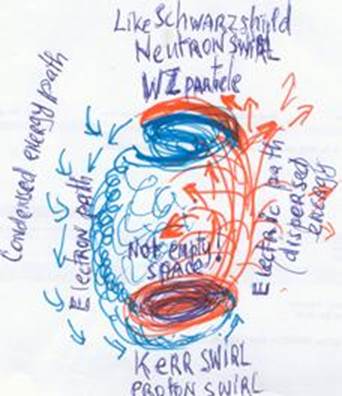 Like Schwarzshild
Neutron swirl
+
WZ particle
Condensed energy path
Electron path
Not empty!
space!
Electric path
(dispersed
energy
Kerr swirl
Proton swirl